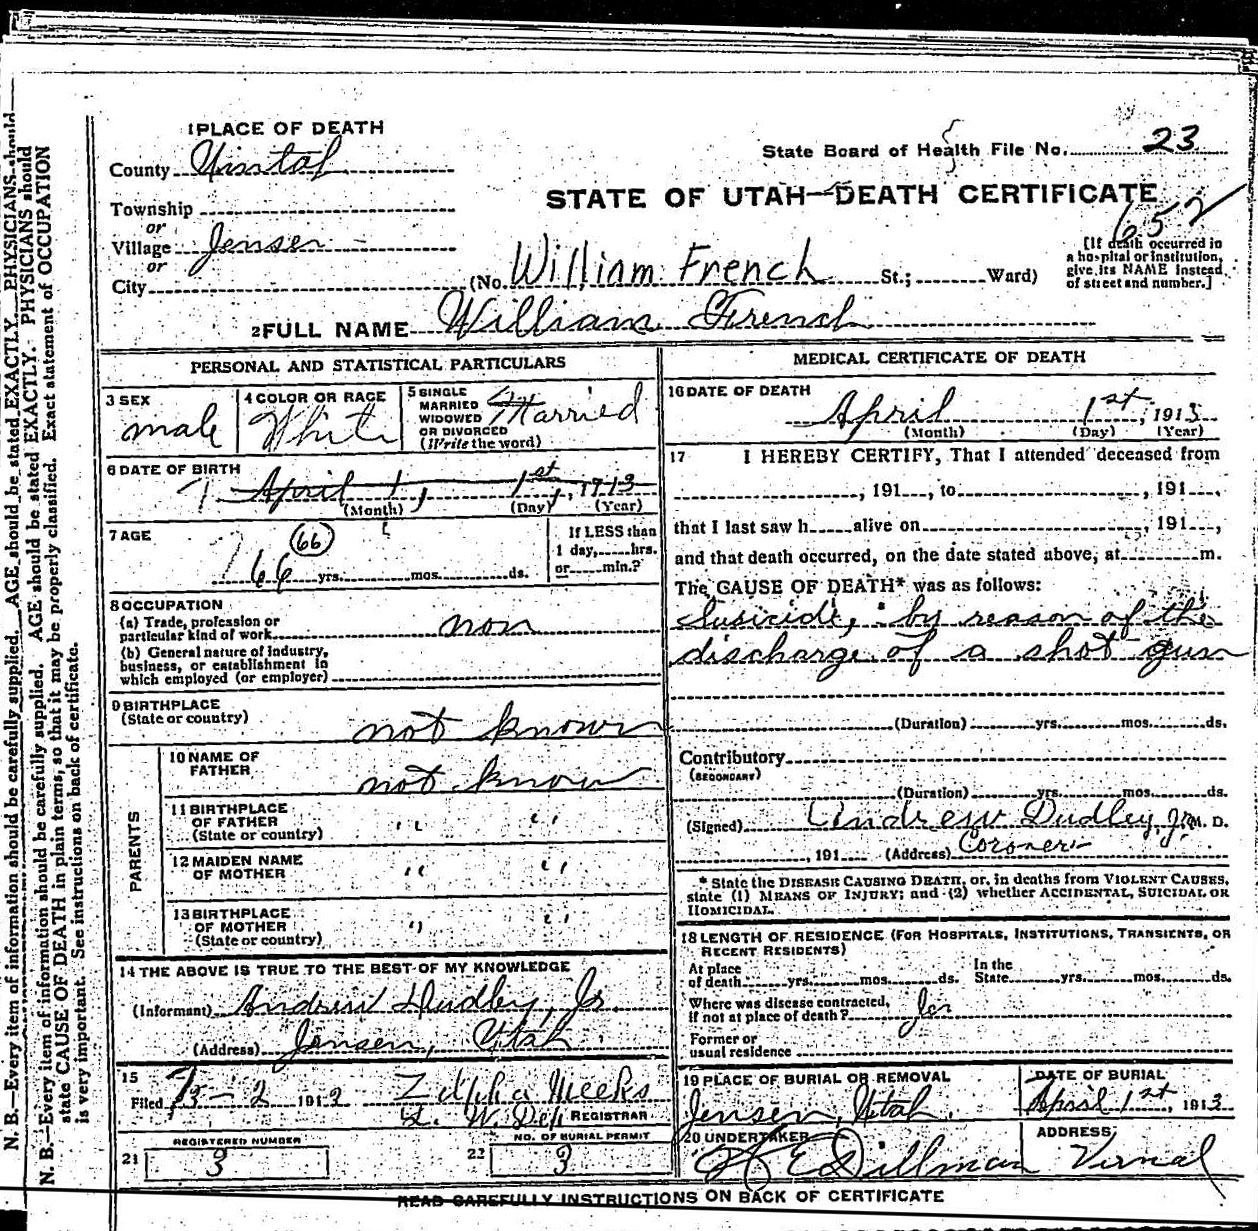 1 PLACE OF DEATH
County Uintah
State Board of Health File No. 23
STATE OF UTAH—DEATH CERTIFICATE
652
Township
or
Village Jensen
or
City (No. William French St.; Ward)
[If death occurred in
a hospital or institution,
give its NAME instead
of street and number.]
2 FULL NAME William French
PERSONAL AND STATISTICAL PARTICULARS
3 SEX
male
4 COLOR OR RACE
White
5 SINGLE
MARRIED
WIDOWED
OR DIVORCED
(Write the word)
Married
6 DATE OF BIRTH
? April 1, 1st, 1913
(Month) (Day) (Year)
7 AGE
(66)
? 66 yrs. mos. ds.
If LESS than
1 day, hrs.
or min.?
8 OCCUPATION
(a) Trade, profession or
particular kind of work non
(b) General nature of industry,
business, or establishment in
which employed (or employer)
9 BIRTHPLACE
(State or country)
not known
PARENTS
10 NAME OF
FATHER
not know
11 BIRTHPLACE
OF FATHER
(State or country)
" "
12 MAIDEN NAME
OF MOTHER
" "
13 BIRTHPLACE
OF MOTHER
(State or country)
" "
14 THE ABOVE IS TRUE TO THE BEST OF MY KNOWLEDGE
(Informant) Andrew Dudley, Jr
(Address) Jensen, Utah
15
Filed 3-2 1913 Zelpha Meeks
REGISTRAR
REGISTERED NUMBER
21 3
NO. OF BURIAL PERMIT
22 3
MEDICAL CERTIFICATE OF DEATH
16 DATE OF DEATH
April 1st, 1913
(Month) (Day) (Year)
17 I HEREBY CERTIFY, That I attended deceased from
, 191 , to , 191 ,
that I last saw h alive on , 191 ,
and that death occurred, on the date stated above, at m.
The CAUSE OF DEATH* was as follows:
Suicide, by reason of the
discharge of a shot gun
(Duration) yrs. mos. ds.
Contributory
(SECONDARY)
(Duration) yrs. mos. ds.
(Signed) Andrew Dudley, Jr. M. D.
, 191 (Address) Coroner
* State the DISEASE CAUSING DEATH, or, in deaths from VIOLENT CAUSES,
state (1) MEANS OF INJURY; and (2) whether ACCIDENTAL, SUICIDAL OR
HOMICIDAL.
18 LENGTH OF RESIDENCE (FOR HOSPITALS, INSTITUTIONS, TRANSIENTS, OR
RECENT RESIDENTS)
At place
of death yrs. mos. ds.
In the
State yrs. mos. ds.
Where was disease contracted,
if not at place of death? Jen
Former or
usual residence
19 PLACE OF BURIAL OR REMOVAL
Jensen, Utah.
DATE OF BURIAL
April 1st, 1913
20 UNDERTAKER
Dillman
ADDRESS
Vernal
READ CAREFULLY INSTRUCTIONS ON BACK OF CERTIFICATE
N. B.—Every item of information should be carefully supplied. AGE should be stated EXACTLY. PHYSICIANS should
N. B.—Every item of information should be carefully supplied. AGE should be stated EXACTLY. PHYSICIANS should
state CAUSE OF DEATH in plain terms, so that it may be properly classified. Exact statement of OCCUPATION
is very important. See instructions on back of certificate.